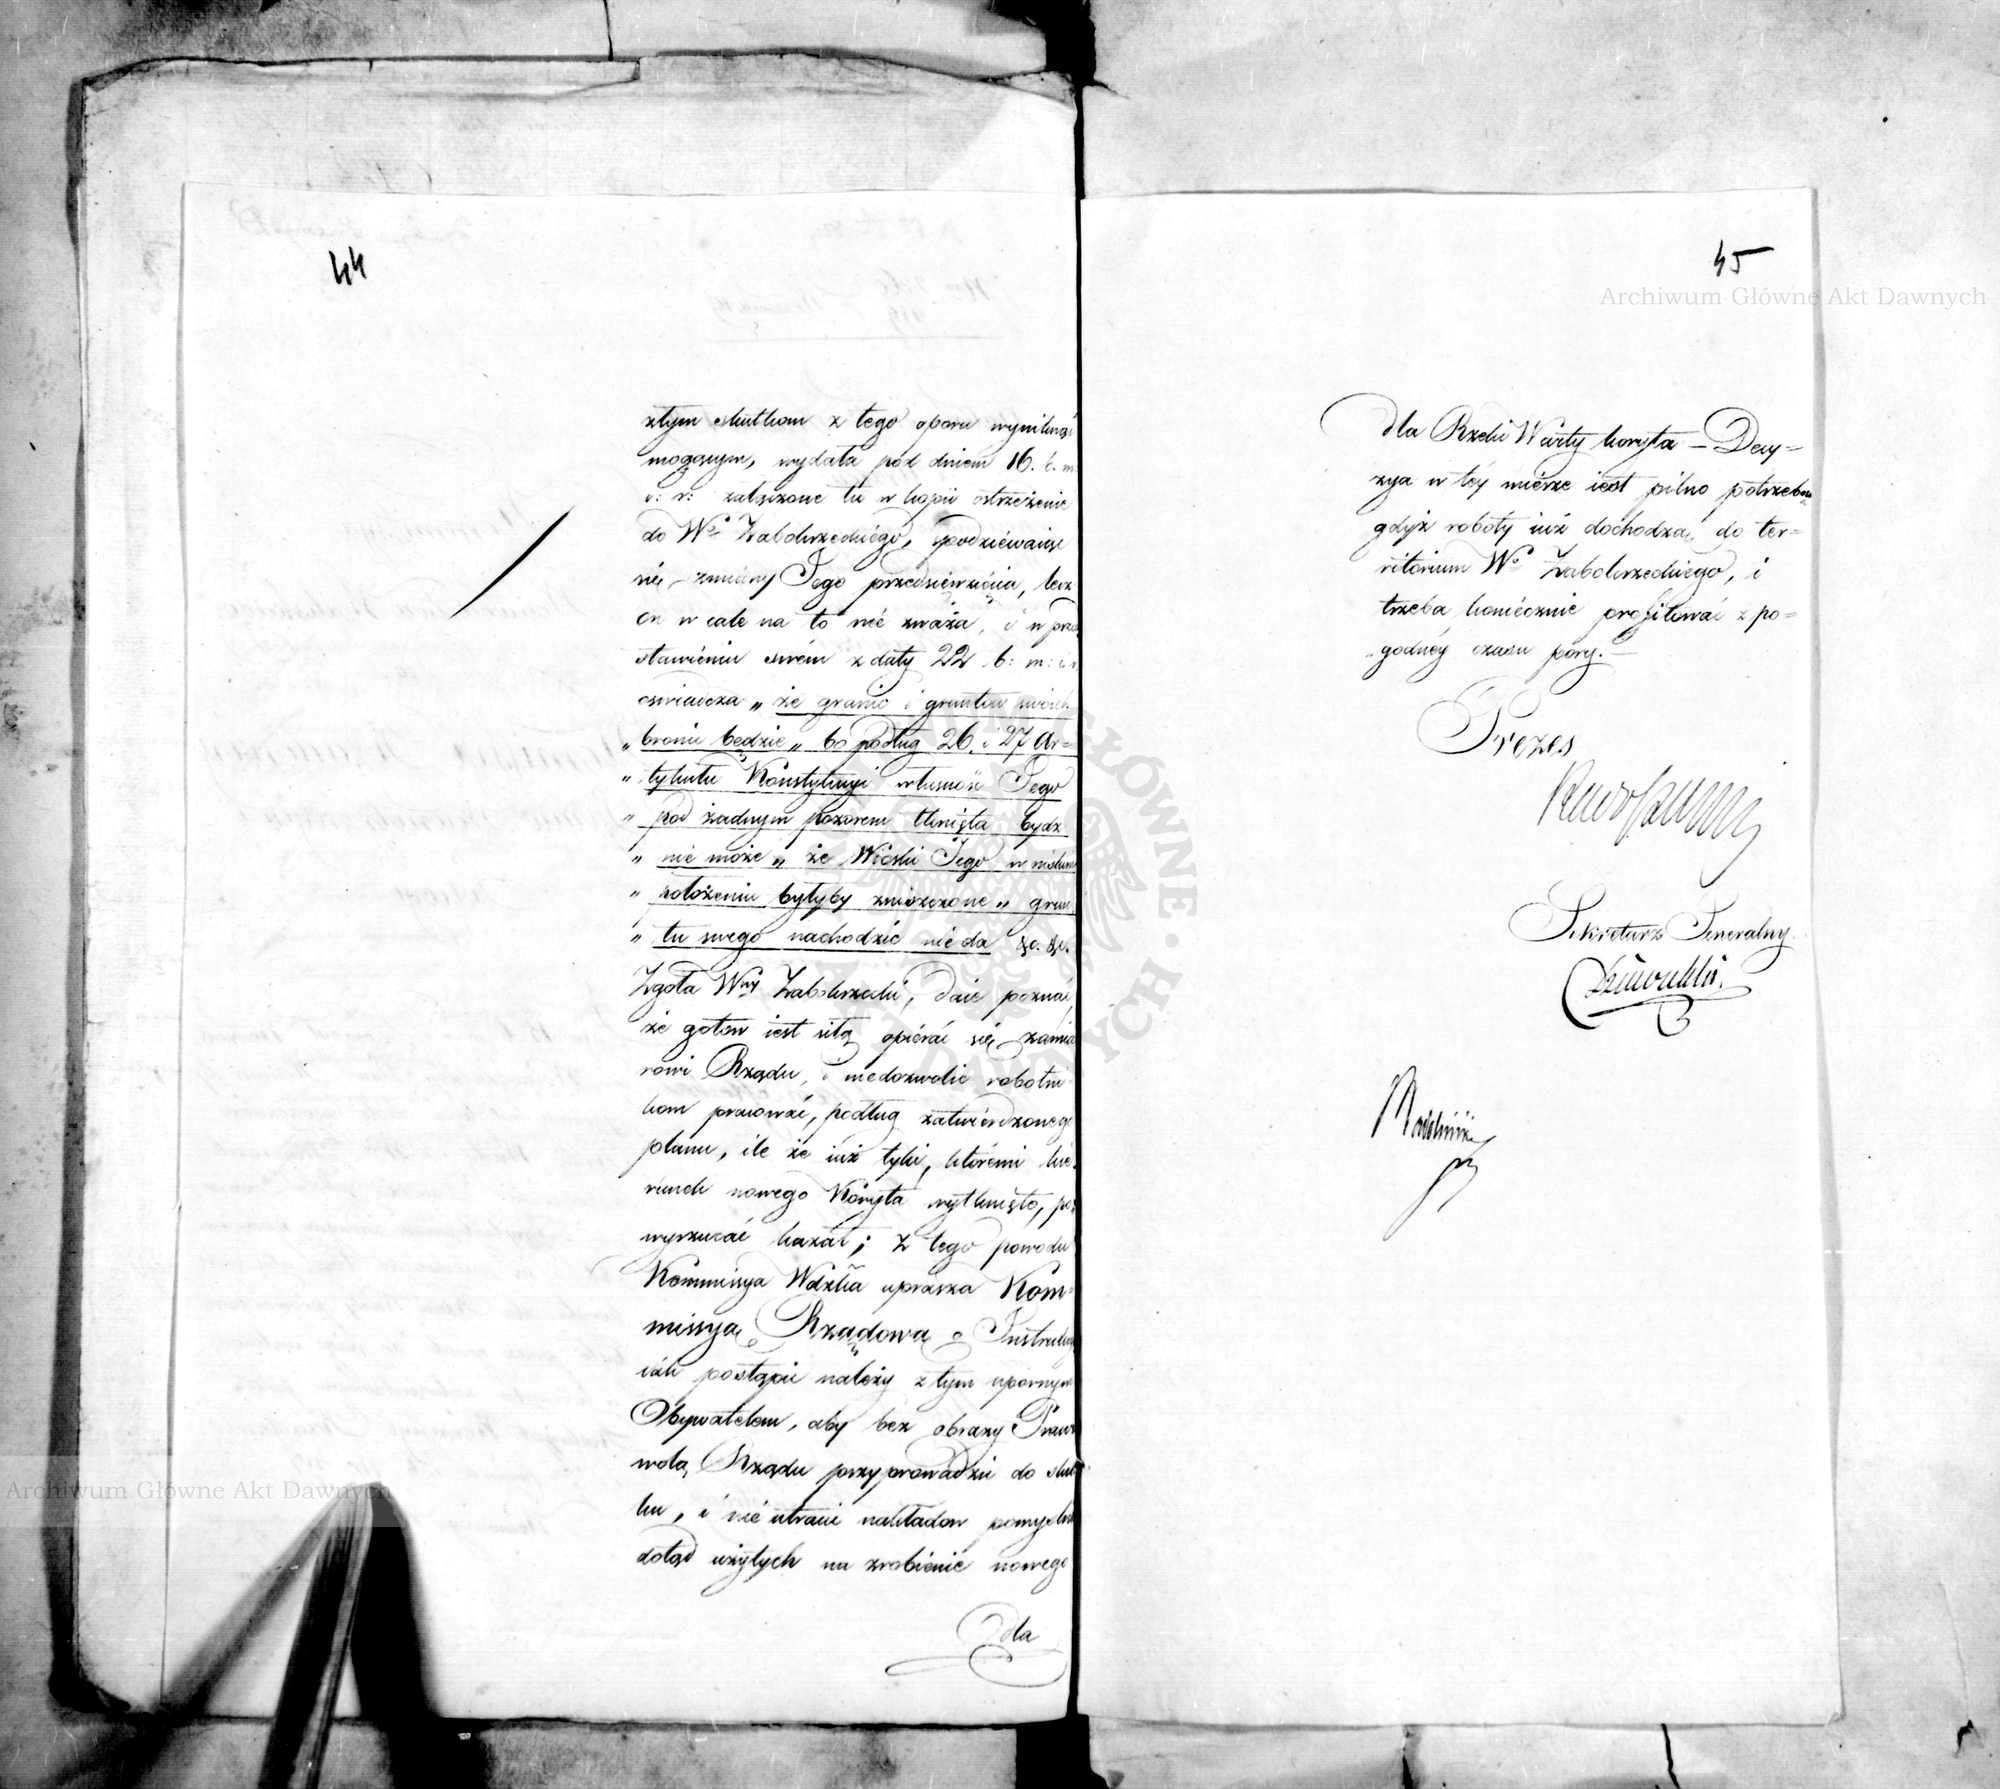 44
złym skutkom z tego oporu wyniknąć
mogącym, wydała pod dniem 16. b. m.
i: r: załączone tu w kopii ostrzeżenie
do Wo Zabokrzeckiégo, spodziéwaiąc
się zmiany Jego przedsięwzięcia, lecz
on w cale na to nié zważa, i w przed
stawiéniu swém z daty 22 b: m: i r
oswiadcza „ że granic i gruntów swoich
„ bronić będzie „ bo podług 26. i 27 Ar=
„ tykułu Konstytucyi własność Jego
„ pod żadnym pozorem tknięta bydź
„ nié może „ że Wioski Jego w
„ położeniu byłyby zniszczone „ grun
„ tu swego nachodzić nié da &c. &c.
Zgoła Wny Zabokrzecki, daie poznać,
że gotow iest siłą opiérać się zamia
rowi Rządu, i niedozwolić robotni
kom pracować, podług zatwiérdzonego
planu, ile że iuż tyki, któremi kie=
runek nowego Koryta wytknięto, po
wyrzucać kazał; z tego powodu
Kommissya Wdzka uprasza Kom=
missyą Rządową o Instrukcyą
iak postąpić należy z tym upornym
Obywatelem, aby bez obrazy Prawa
wolą Rządu przyprowadzić do skut
ku, i nié utracić nakładow pomyślnie
dotąd użytych na zrobienie nowego
dla
45
Archiwum Główne Akt Dawnych
dla Rzeki Warty koryta – Decy=
zya w téy miérze iest pilno potrzebna
gdyż roboty iuż dochodzą do ter=
ritorium Wo Zabokrzeckiego, i
trzeba koniécznie profitować z po=
godnéy czasu pory. –
Prezes
Sekretarz Generalny
Archiwum Główne Akt Dawnych